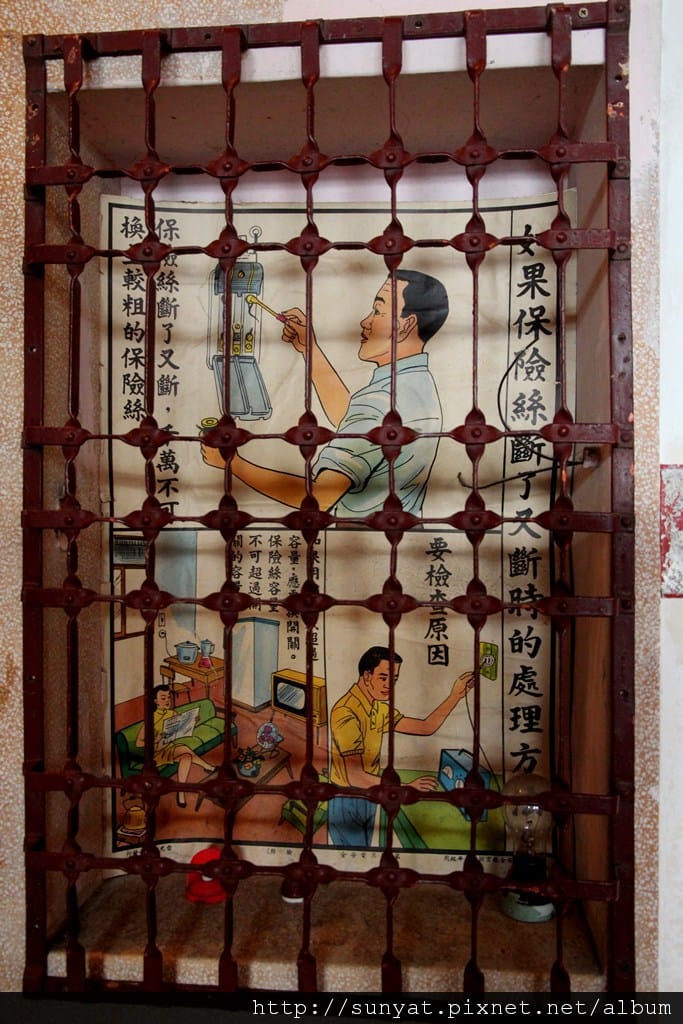 如果保險絲斷了又斷時的處理方
保險絲斷了又斷，千萬不可
換 較粗的保險絲
要檢查原因
如果用 超過
容量：應 換開關。
保險絲容量
不可超過開
關的容
http://sunyat.pixnet.net/album